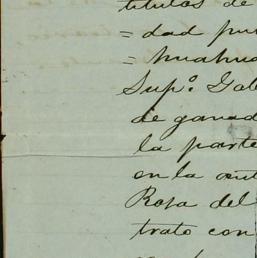 titulos de
= dad pu
= huahua
Sup.º Gob
de ganad
la parte
en la
Rosa del
trato con